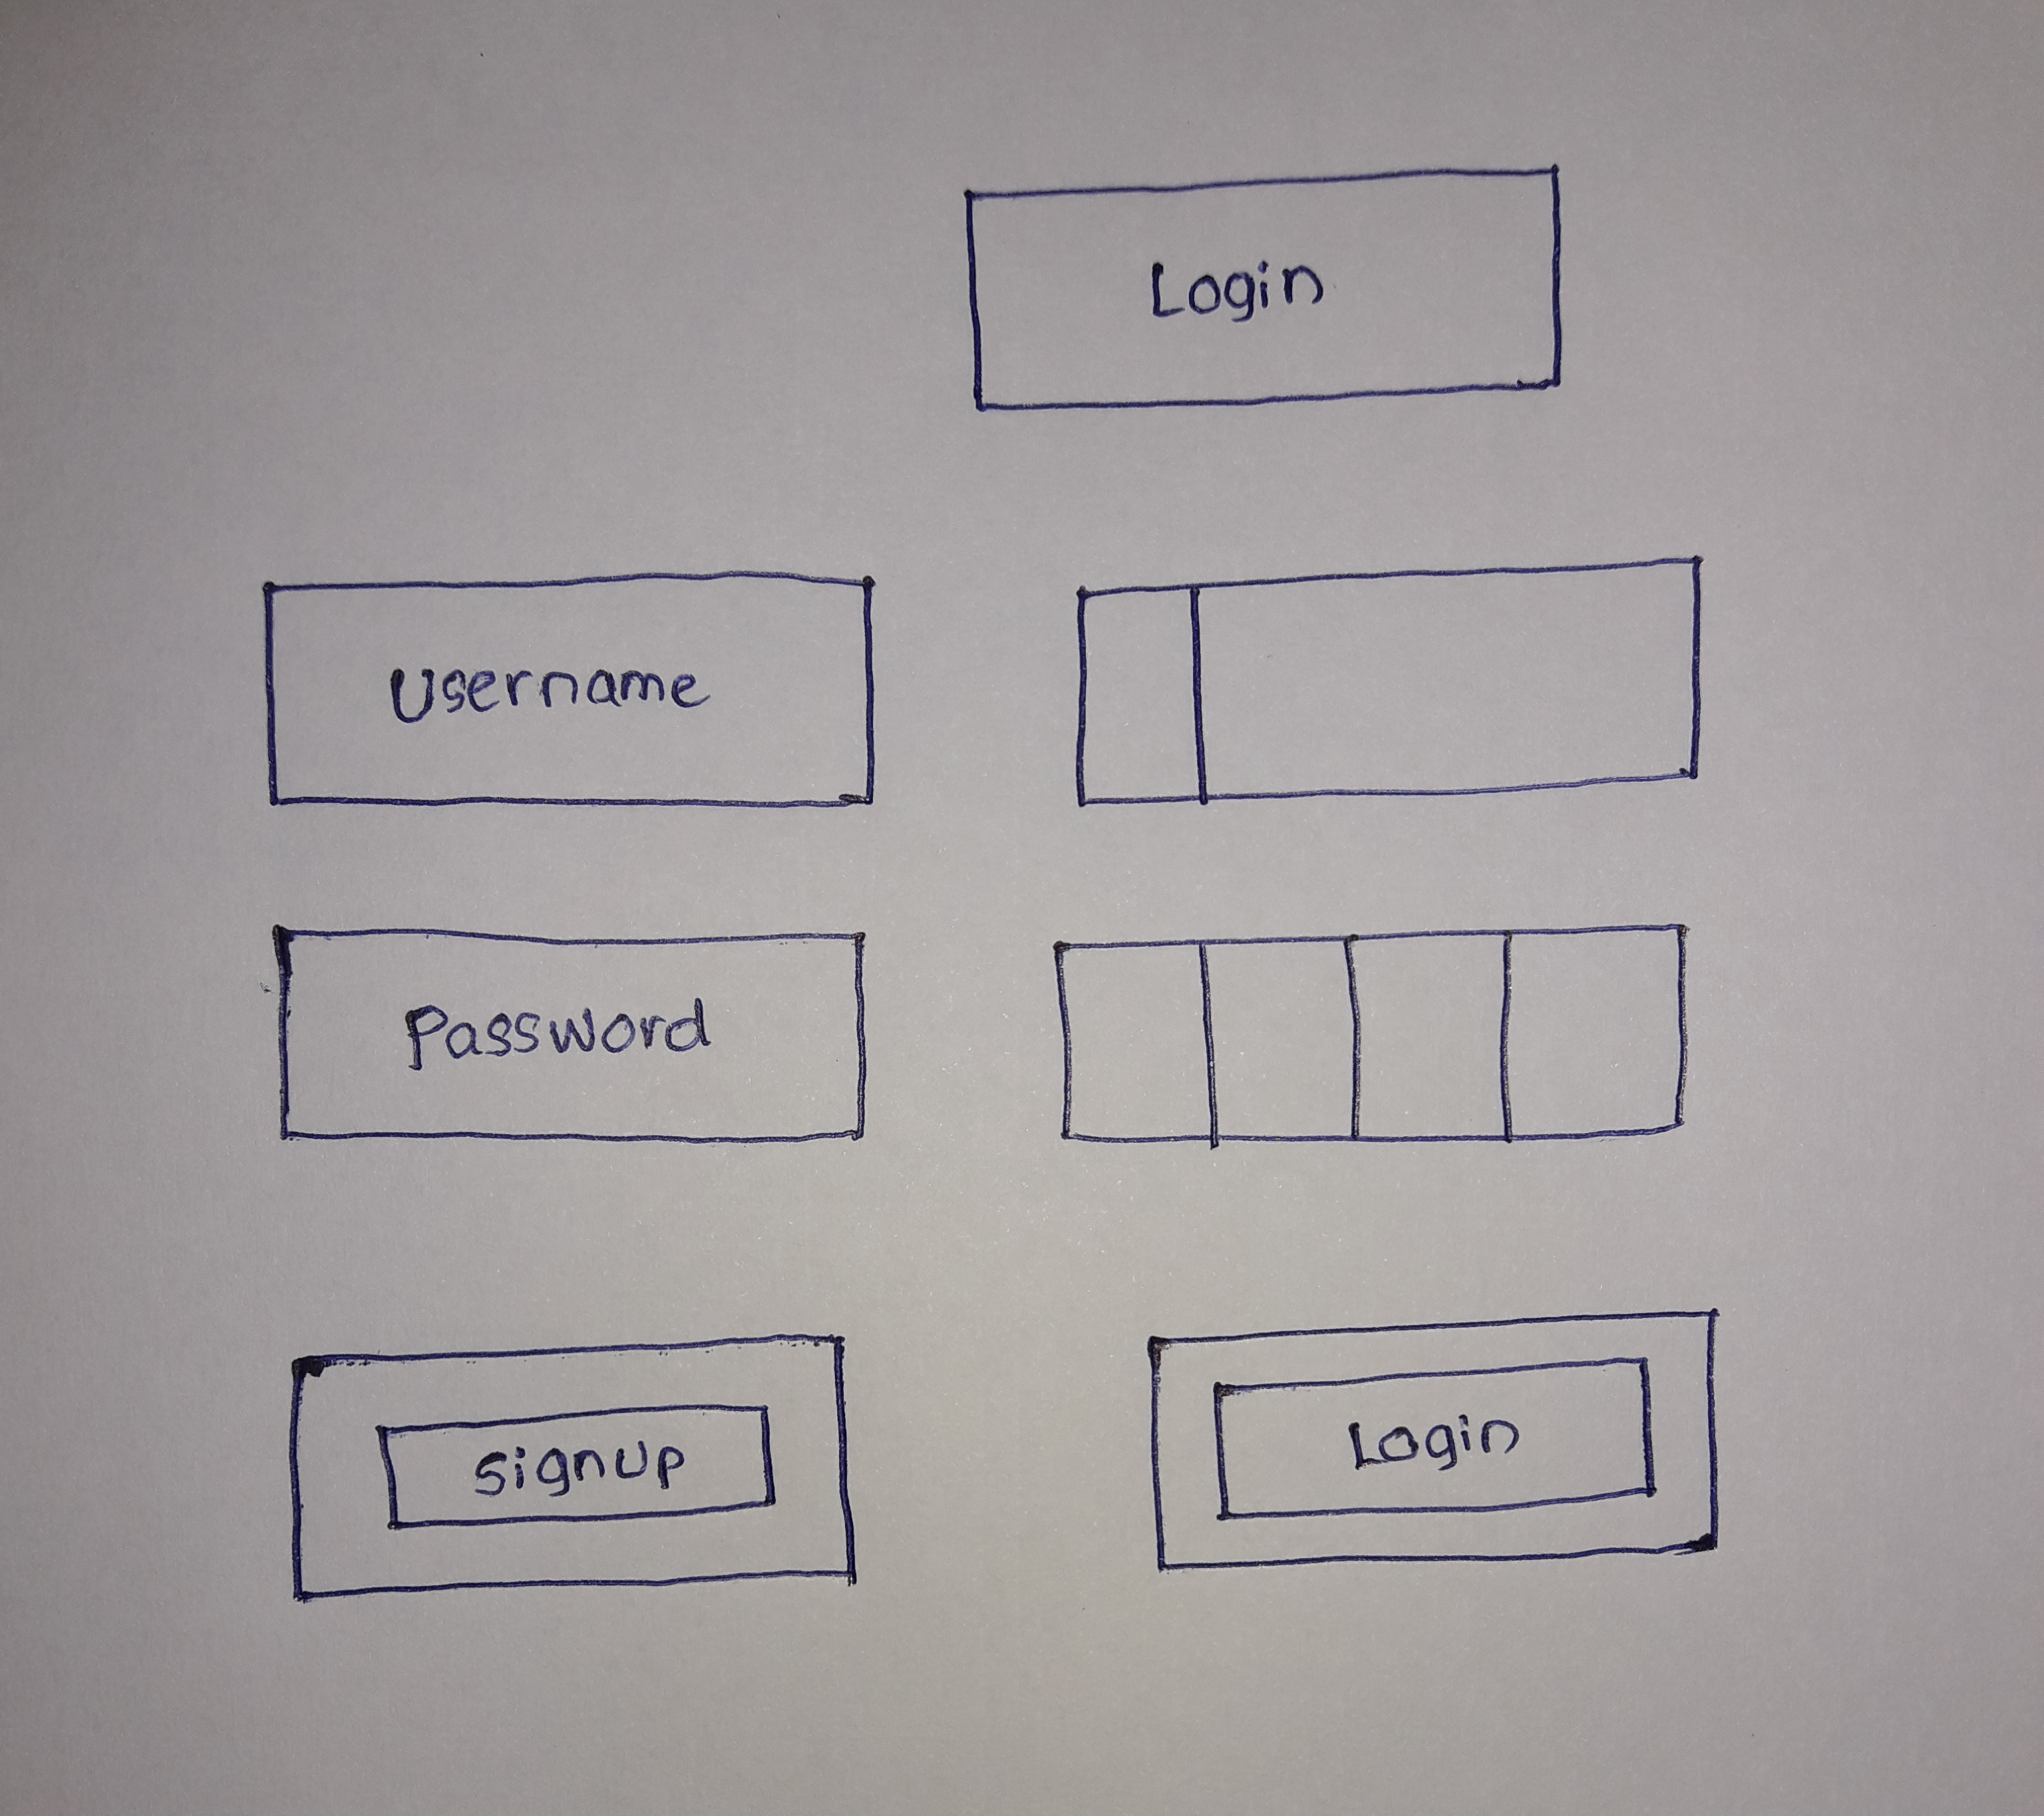 Login
Username
Password
Signup
Login